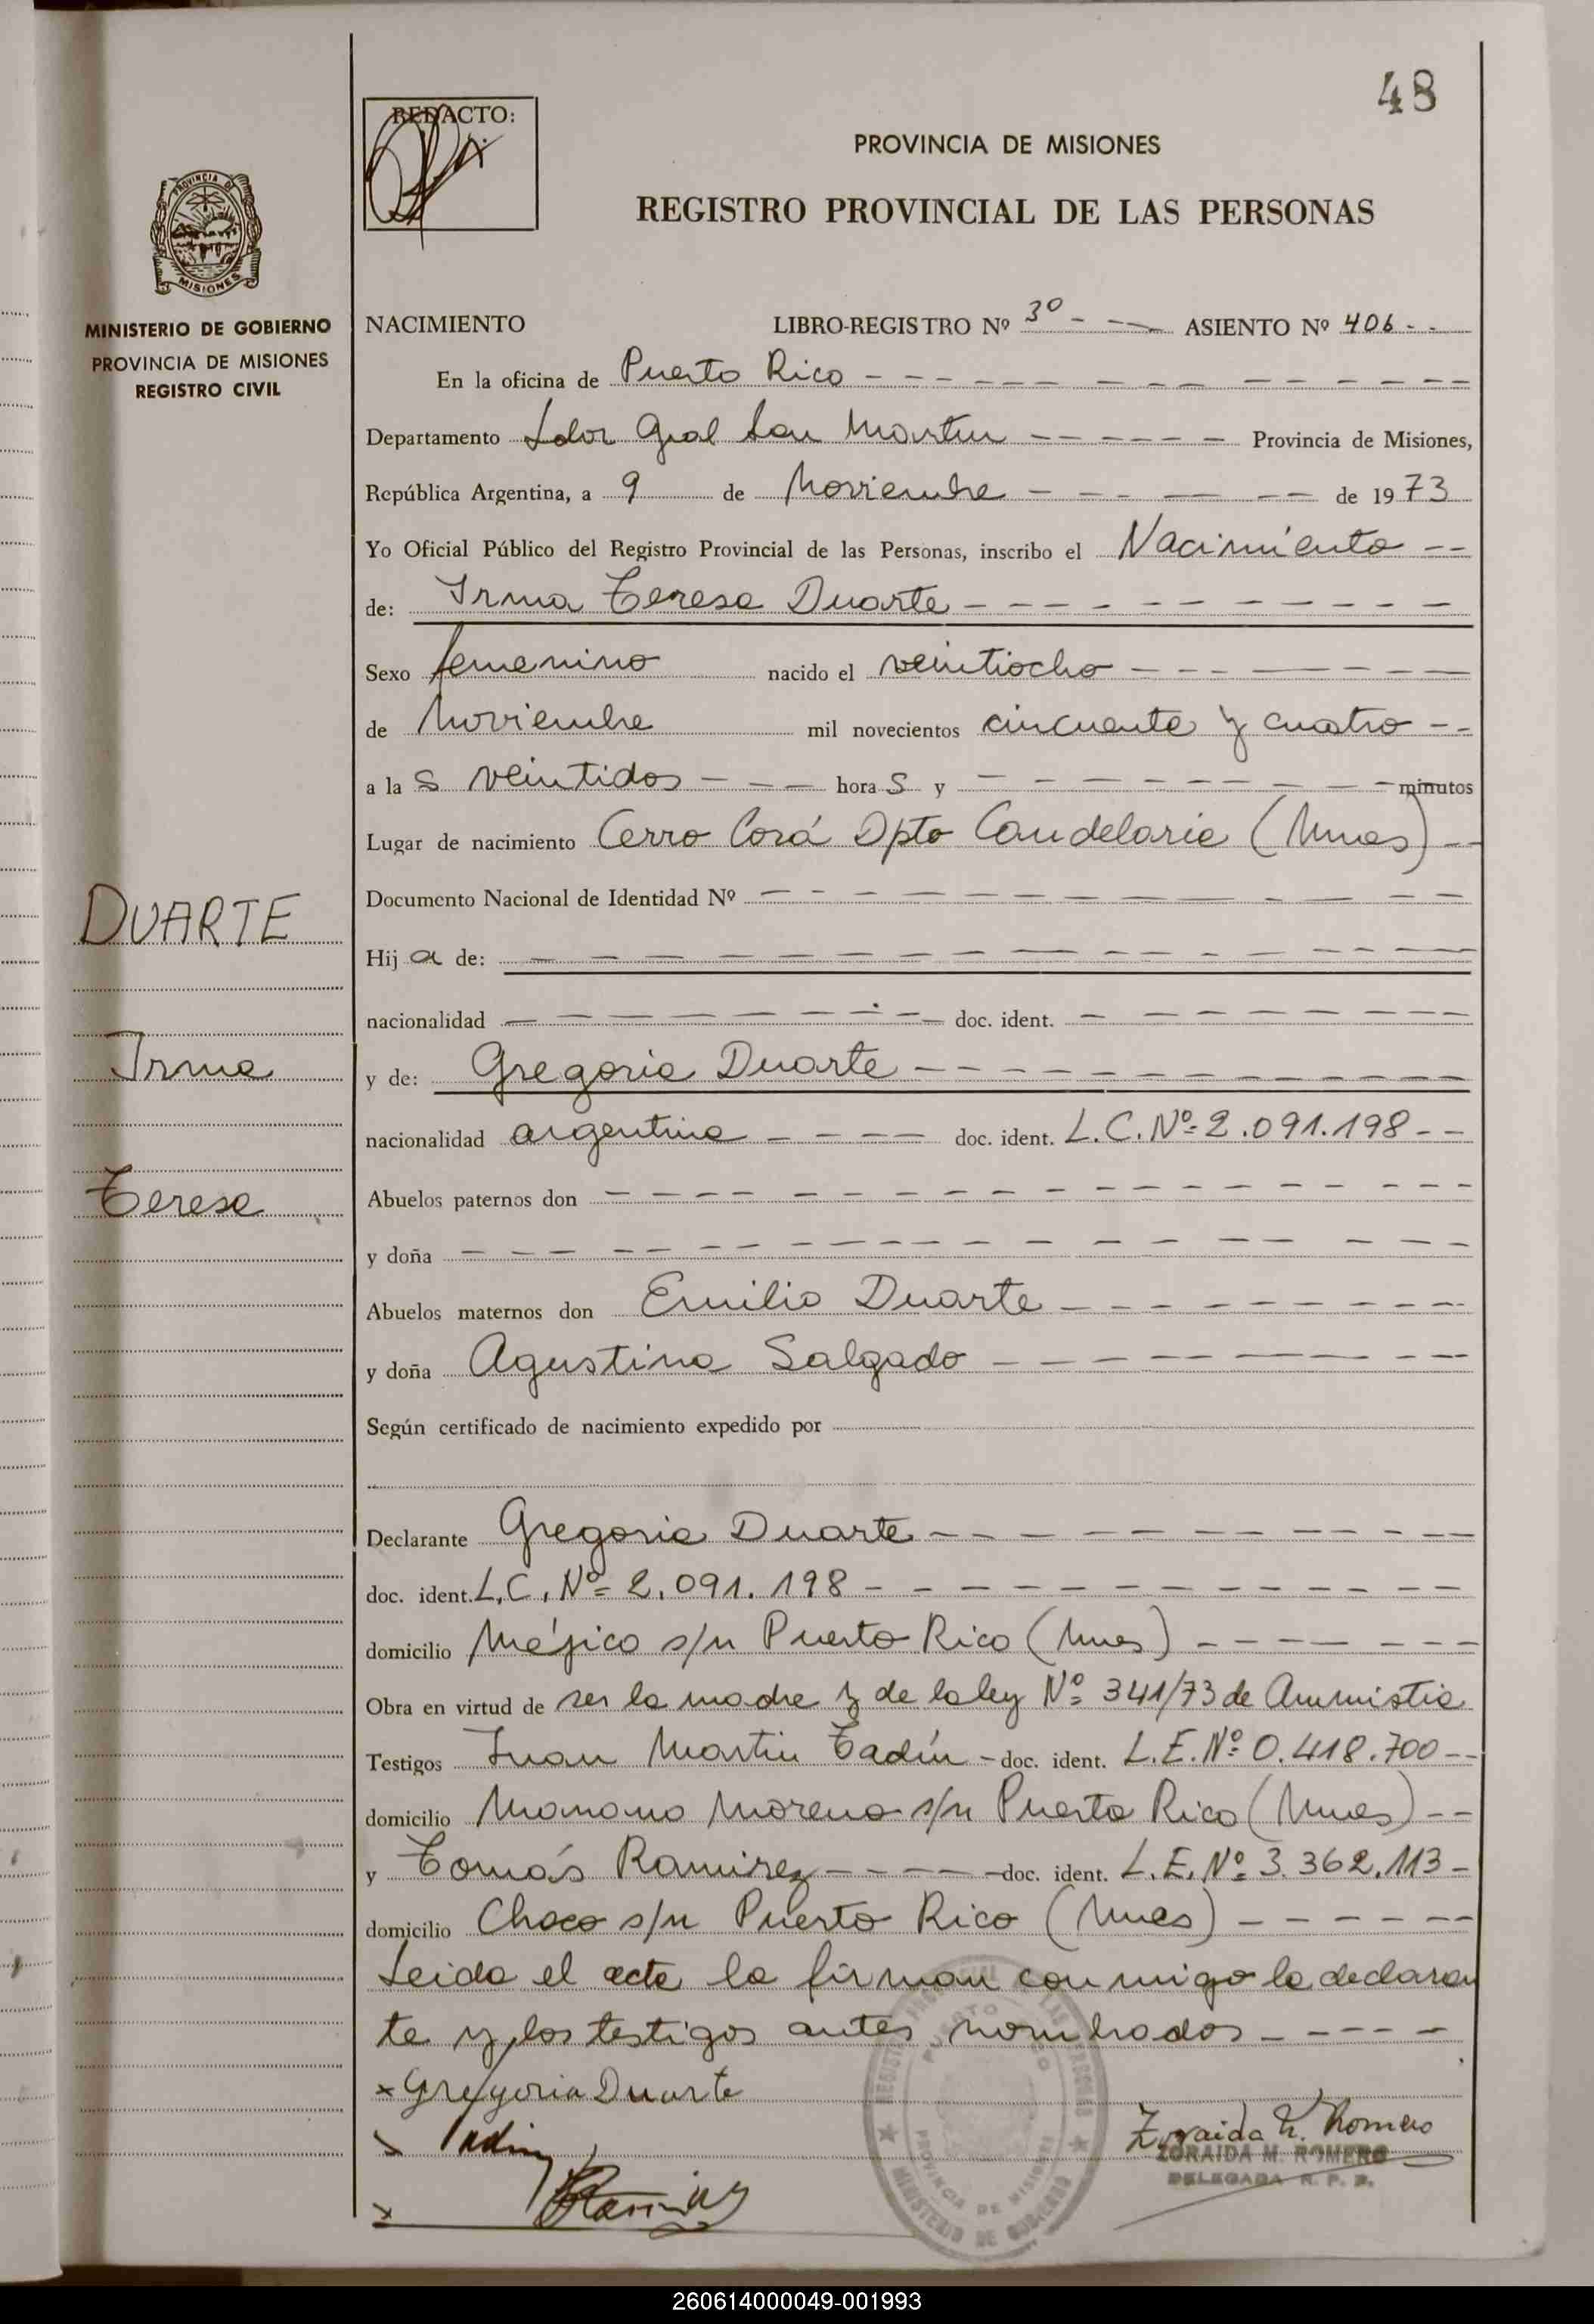 48
REDACTO:
PROVINCIA DE MISIONES
REGISTRO PROVINCIAL DE LAS PERSONAS
PROVINCIA DE
MISIONES
MINISTERIO DE GOBIERNO
PROVINCIA DE MISIONES
REGISTRO CIVIL
DUARTE
Irma
Teresa
NACIMIENTO LIBRO-REGISTRO Nº 3º - - - ASIENTO Nº 406 - -
En la oficina de Puerto Rico
Departamento Ldor Gral San Martin Provincia de Misiones,
República Argentina, a 9 de Noviembre de 1973
Yo Oficial Público del Registro Provincial de las Personas, inscribo el Nacimiento
de: Irma Teresa Duarte
Sexo femenino nacido el veintiocho
de Noviembre mil novecientos cincuenta y cuatro
a la s veintidos hora s y minutos
Lugar de nacimiento Cerro Corá Dpto Candelaria (Mnes)
Documento Nacional de Identidad Nº
Hij a de:
nacionalidad doc. ident.
y de: Gregoria Duarte
nacionalidad argentina doc. ident. L.C. Nº 2.091.198
Abuelos paternos don
y doña
Abuelos maternos don Emilio Duarte
y doña Agustina Salgado
Según certificado de nacimiento expedido por
Declarante Gregoria Duarte
doc. ident. L.C. Nº 2.091.198
domicilio Méjico s/n Puerto Rico (Mnes)
Obra en virtud de ser la madre y de la ley Nº 341/73 de Amnistia
Testigos Juan Martin Tadín doc. ident. L.E. Nº 0.418.700
domicilio Mariano Moreno s/n Puerto Rico (Mnes)
y Tomás Ramirez doc. ident. L.E. Nº 3.362.113
domicilio Chaco s/n Puerto Rico (Mnes)
Leida el acta la firman conmigo la declaran
te y los testigos antes nombrados
x Gregoria Duarte
Zoraida M. Romero
ZORAIDA M. ROMERO
DELEGADA R. P. P.
PUERTO RICO
PROVINCIA DE MISIONES
MINISTERIO DE GOBIERNO
260614000049-001993